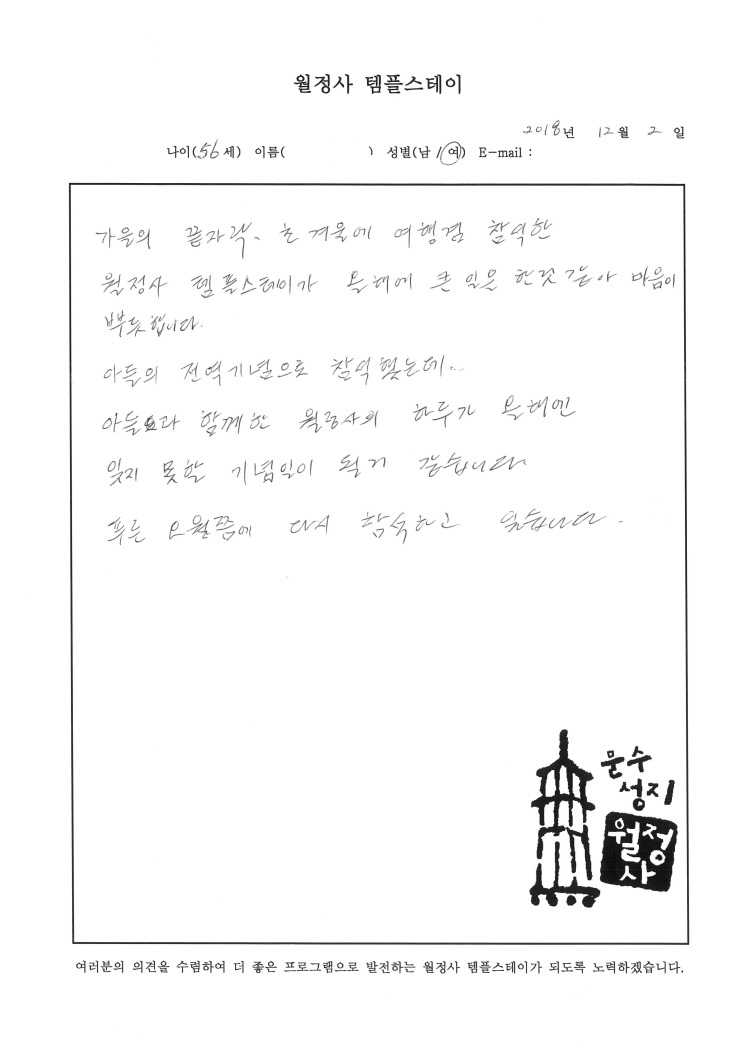 월정사 템플스테이
2018년 12월 2일
나이(56세) 이름( ) 성별(남/여) E-mail :
가을의 끝자락, 초겨울에 여행겸 참석한
월정사 템플스테이가 올해에 큰 일을 한것 같아 마음이
뿌듯합니다.
아들의 전역기념으로 참석했는데...
아들과 함께한 월정사의 하루가 올해엔
잊지 못할 기념일이 될거 같습니다.
푸른 오월쯤에 다시 참석하고 싶습니다.
문수
성지
월정
사
여러분의 의견을 수렴하여 더 좋은 프로그램으로 발전하는 월정사 템플스테이가 되도록 노력하겠습니다.